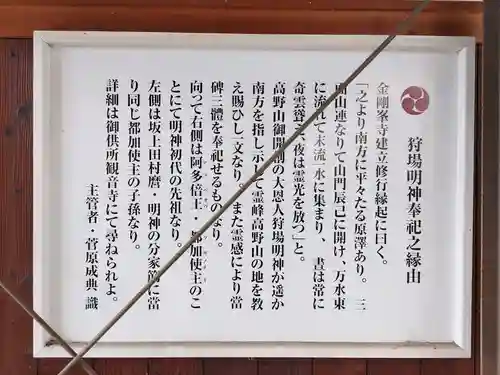 狩場明神奉祀之縁由
金剛峯寺建立修行縁起に曰く。
「之より南方に平々たる原澤あり。三
山連なりて山門辰己に開け、万水東
に流れて末流一水に集まり、晝は常に
奇雲聳え、夜は霊光を放つ」と。
高野山御開創の大恩人狩場明神が遥か
南方を指し示して霊峰高野山の地を教
え賜ひし一文なり。また霊感により當
碑三體を奉祀せるものなり。
向って右側は阿多倍王・都加使主のこ
とにて明神初代の先祖なり。
左側は坂上田村麿・明神の分家筋に當
り同じ都加使主の子孫なり。
詳細は御供所観音寺にて尋ねられよ。
主管者・菅原成典 識